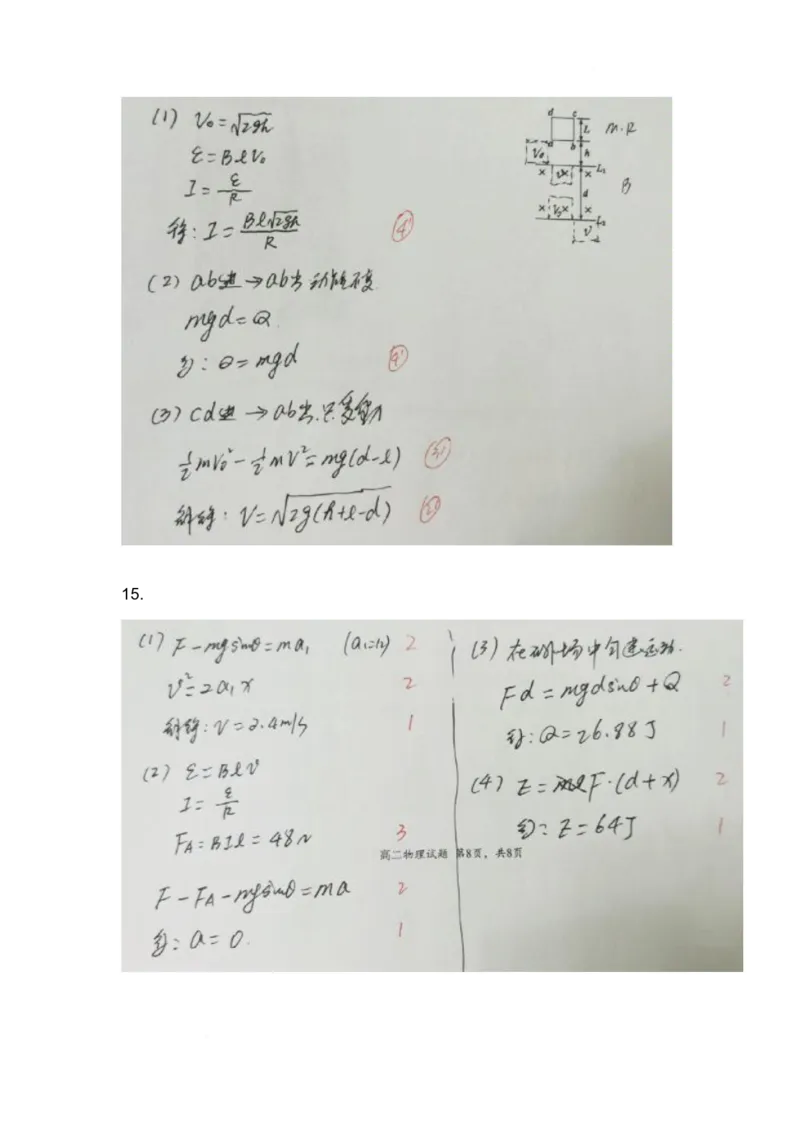 (1) V₀=√2gh
ε=BlV₀
I=ε/R
得: I=Bl√2gh/R ④'
(2) ab进→ab出 动能不变
mgd=Q.
得: Q=mgd ④'
(3) cd进→ab出, 只受重力
½mV₀²-½mV²=mg(d-l)
解得: V=√2g(h+l-d) ②'
d c
l
m. R
a b
V₀
h
L₁
× × ×
d
B
× × ×
L₂
V
15.
(1) F-mgsinθ=ma₁ (a₁=12) 2
v²=2a₁x 2
解得: V=2.4m/s 1
(2) ε=Blv
I=ε/R
F_A=BIl=48N 3
F-F_A-mgsinθ=ma 2
得: a=0. 1
(3) 在磁场中匀速运动.
Fd=mgdsinθ+Q 2
得: Q=26.88J 1
(4) Z=F·(d+x) 2
得: Z=64J 1
高二物理试题 第8页，共8页